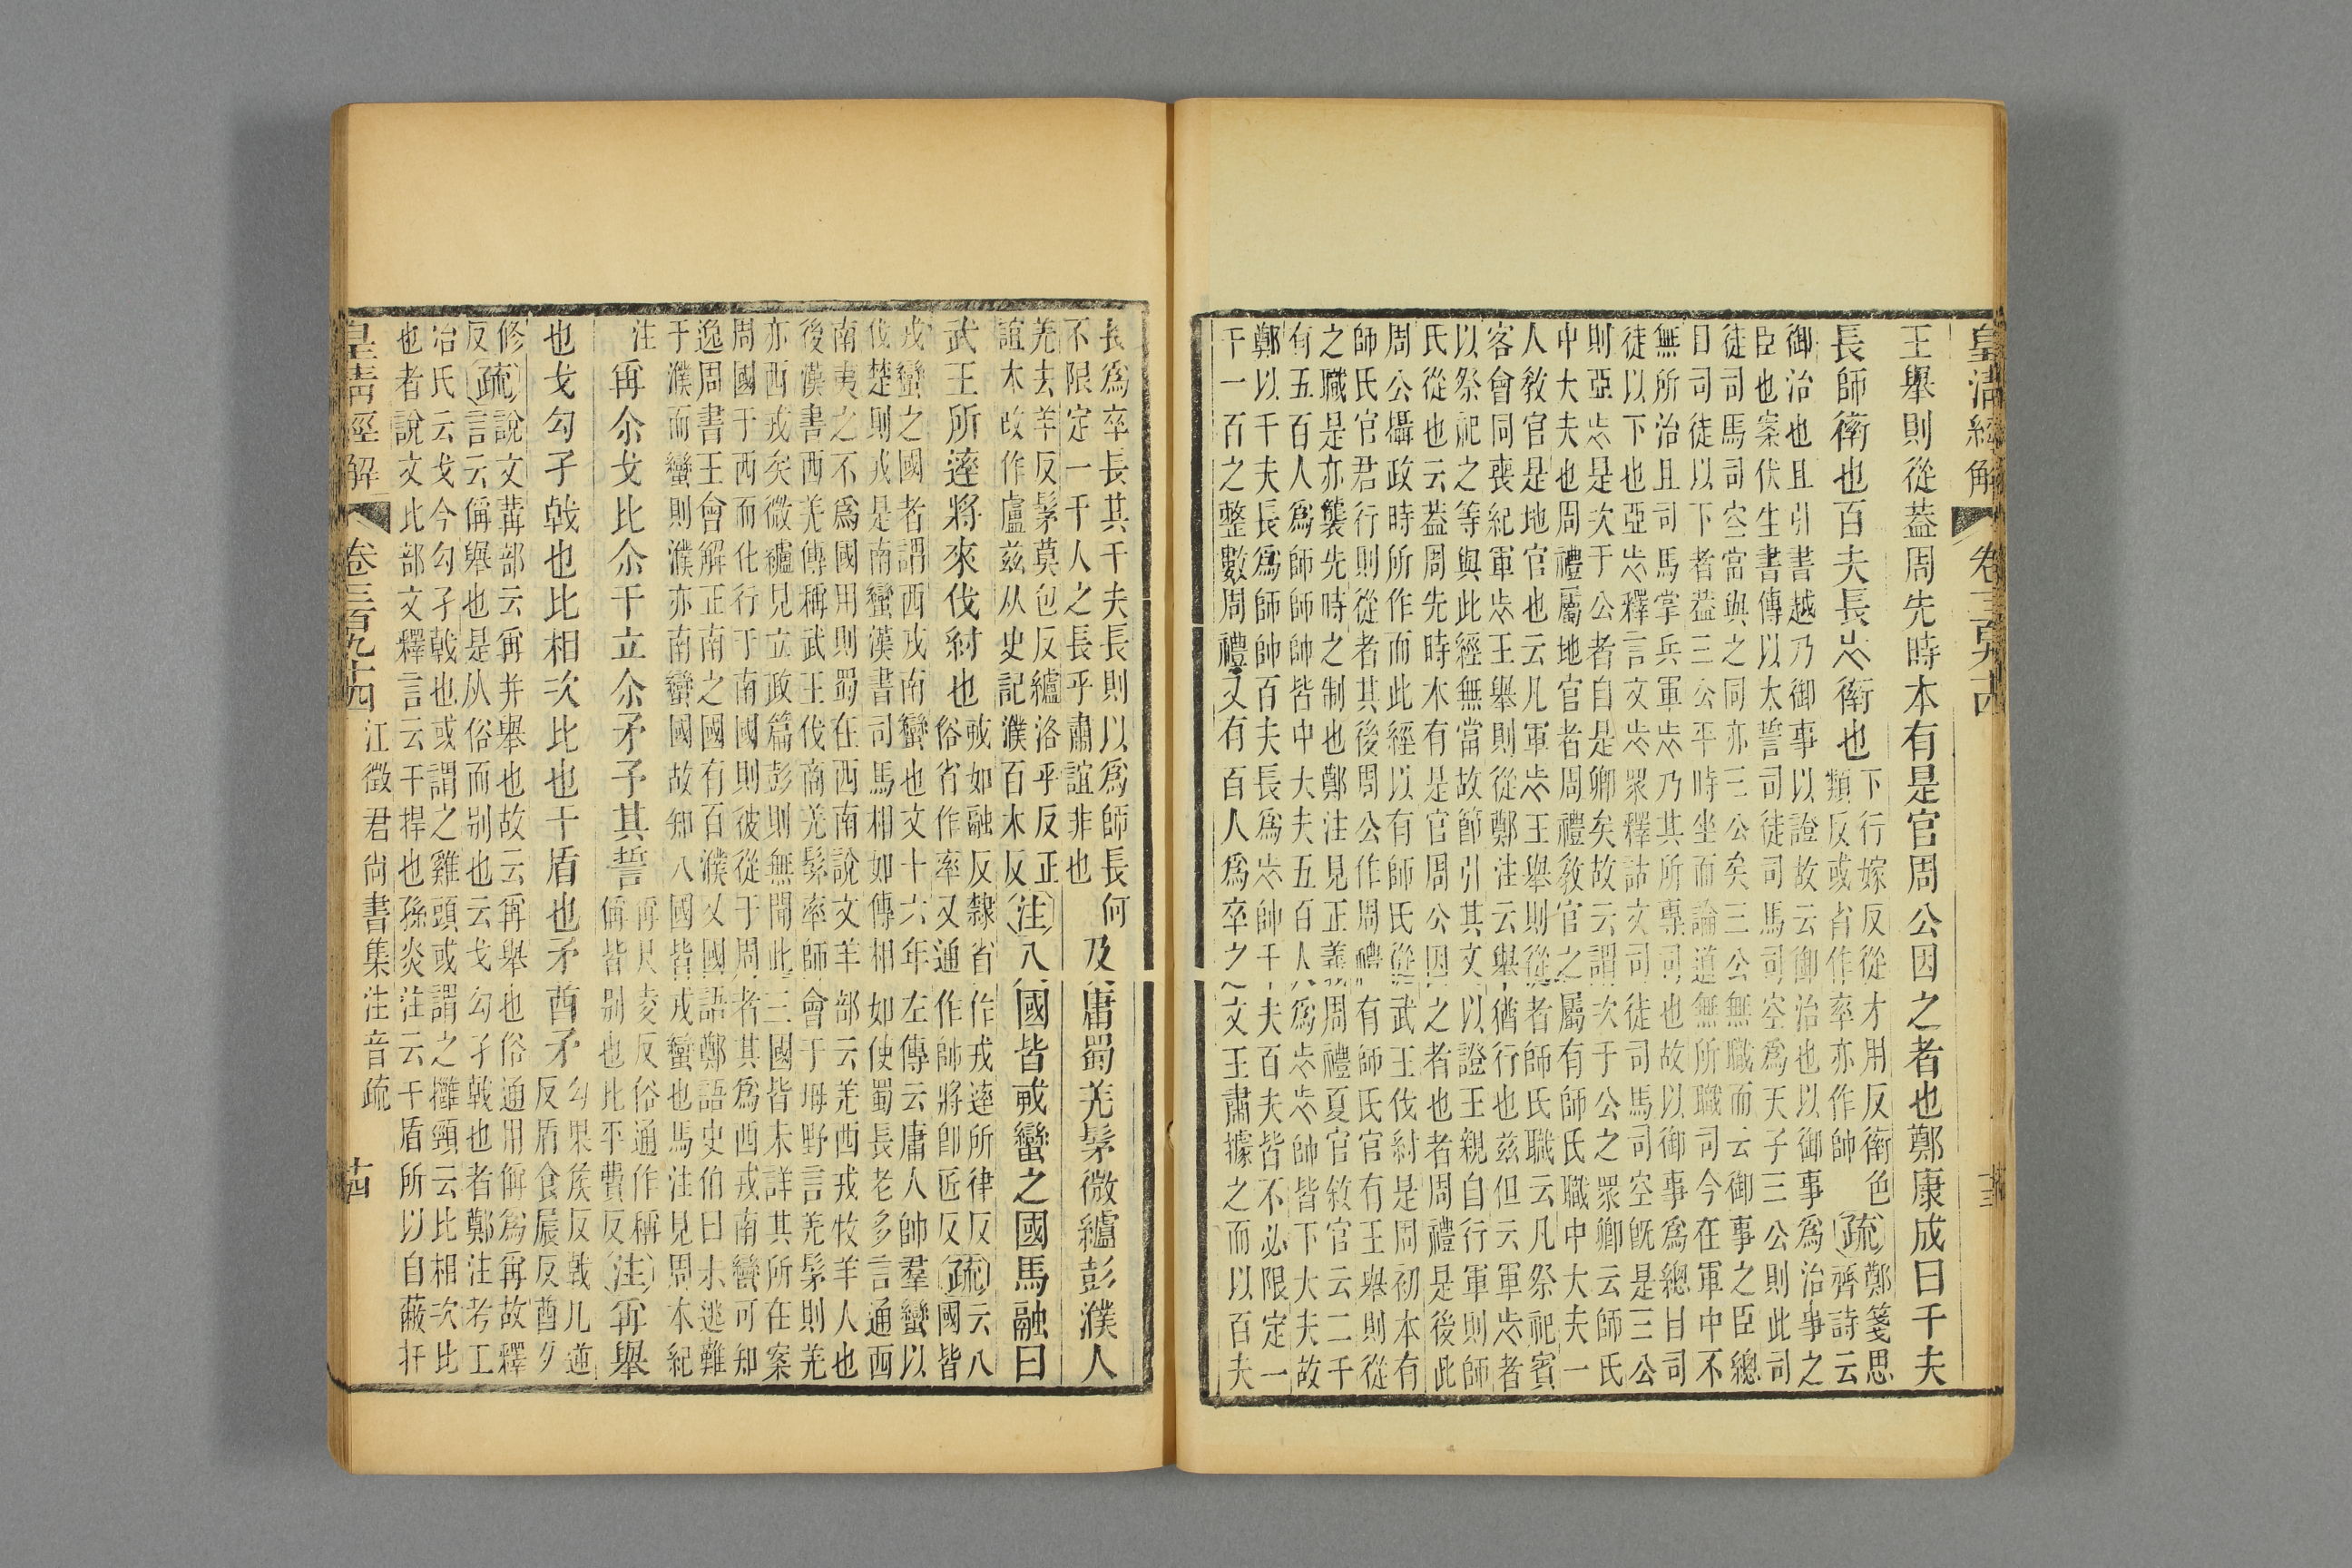 皇清經解 卷三百九十四
王舉則從葢周先時本有是官周公因之者也鄭康成曰千夫
長師衛也百夫長𠂹衛也
下行嫁反從才用反衛色
類反或省作率亦作帥
疏
鄭箋思齊詩云
御治也且引書越乃御事以證故云御治也以御事爲治事之
臣也案伏生書傳以太誓司徒司馬司空爲天子三公則此司
徒司馬司空當與之同亦三公矣三公無職而云御事之臣總
曰司徒以下者葢三公平時坐而論道無所職司今在軍中不
無所治且司馬掌兵軍
乃其所專司也故以御事爲總目司
徒以下也亞
釋言文
眾釋詁文司徒司馬司空既是三公
則亞
是次于公者自是卿矣故云謂次于公之眾卿云師氏
中大夫也周禮屬地官者周禮敎官之屬有師氏職中大夫一
人敎官是地官也云凡軍
王舉則從者師氏職云凡祭祀賓
客會同喪紀軍
王舉則從鄭注云舉猶行也兹但云軍
者
以祭祀之等與此經無當故節引其文以證王親自行軍則師
氏從也云葢周先時本有是官周公因之者也者周禮是後此
周公攝政時所作而此經以有師氏從武王伐紂是周初本有
師氏官君行則從者其後周公作周禮有師氏官有王舉則從
之職是亦襲先時之制也鄭注見正義周禮夏官敘官云二千
有五百人爲師師帥皆中大夫五百人爲
帥皆下大夫故
鄭以千夫長爲師帥百夫長爲
帥千夫百夫皆不必限定一
千一百之整數周禮又有百人爲卒之文王肅據之而以百夫
長爲卒長其千夫長則以爲師長何
不限定一千人之長乎肅誼非也
及庸蜀羌髳微纑彭濮人
羌去羊反髳莫包反纑洛乎反正
誼本改作盧兹从史記濮百木反
注
八國皆戎蠻之國馬融曰
武王所達將來伐紂也
戎如融反隸省作戎達所律反
俗省作率又通作帥將卽匠反
疏
云八
國皆
戎蠻之國者謂西戎南蠻也文十六年左傳云庸人帥羣蠻以
伐楚則戎是南蠻漢書司馬相如傳相如使蜀長老多言通西
南夷之不爲國用則蜀在西南說文羊部云羌西戎牧羊人也
後漢書西羌傳稱武王伐商羌髳率師會于坶野言羌髳則羌
亦西戎矣微纑見立政篇彭則無聞此三國皆未詳其所在案
周國于西而化行于南國則彼從于周者其爲西戎南蠻可知
逸周書王會解正南之國有百濮又國語鄭語史伯曰未逃難
于濮而蠻則濮亦南蠻國故知八國皆戎蠻也馬注見周本紀
注
再尒戈比尒干立尒矛予其誓
再尺夌反俗通作稱
偁皆别也比平費反
注
再舉
也戈勾孑戟也比相次比也干盾也矛酋矛
勾果矦反戟几逆
反盾食展反酋夕
修
反
疏
說文冓部云再并舉也故云再舉也俗通用偁爲再故釋
言云偁舉也是从俗而别也云戈勾孑戟也者鄭注考工
冶氏云戈今勾孑戟也或謂之雞頭或謂之擁頸云比相次比
也者說文比部文釋言云干捍也孫炎注云干盾所以自蔽扞
皇清經解 卷三百九十四 江徵君尚書集注音疏 十四